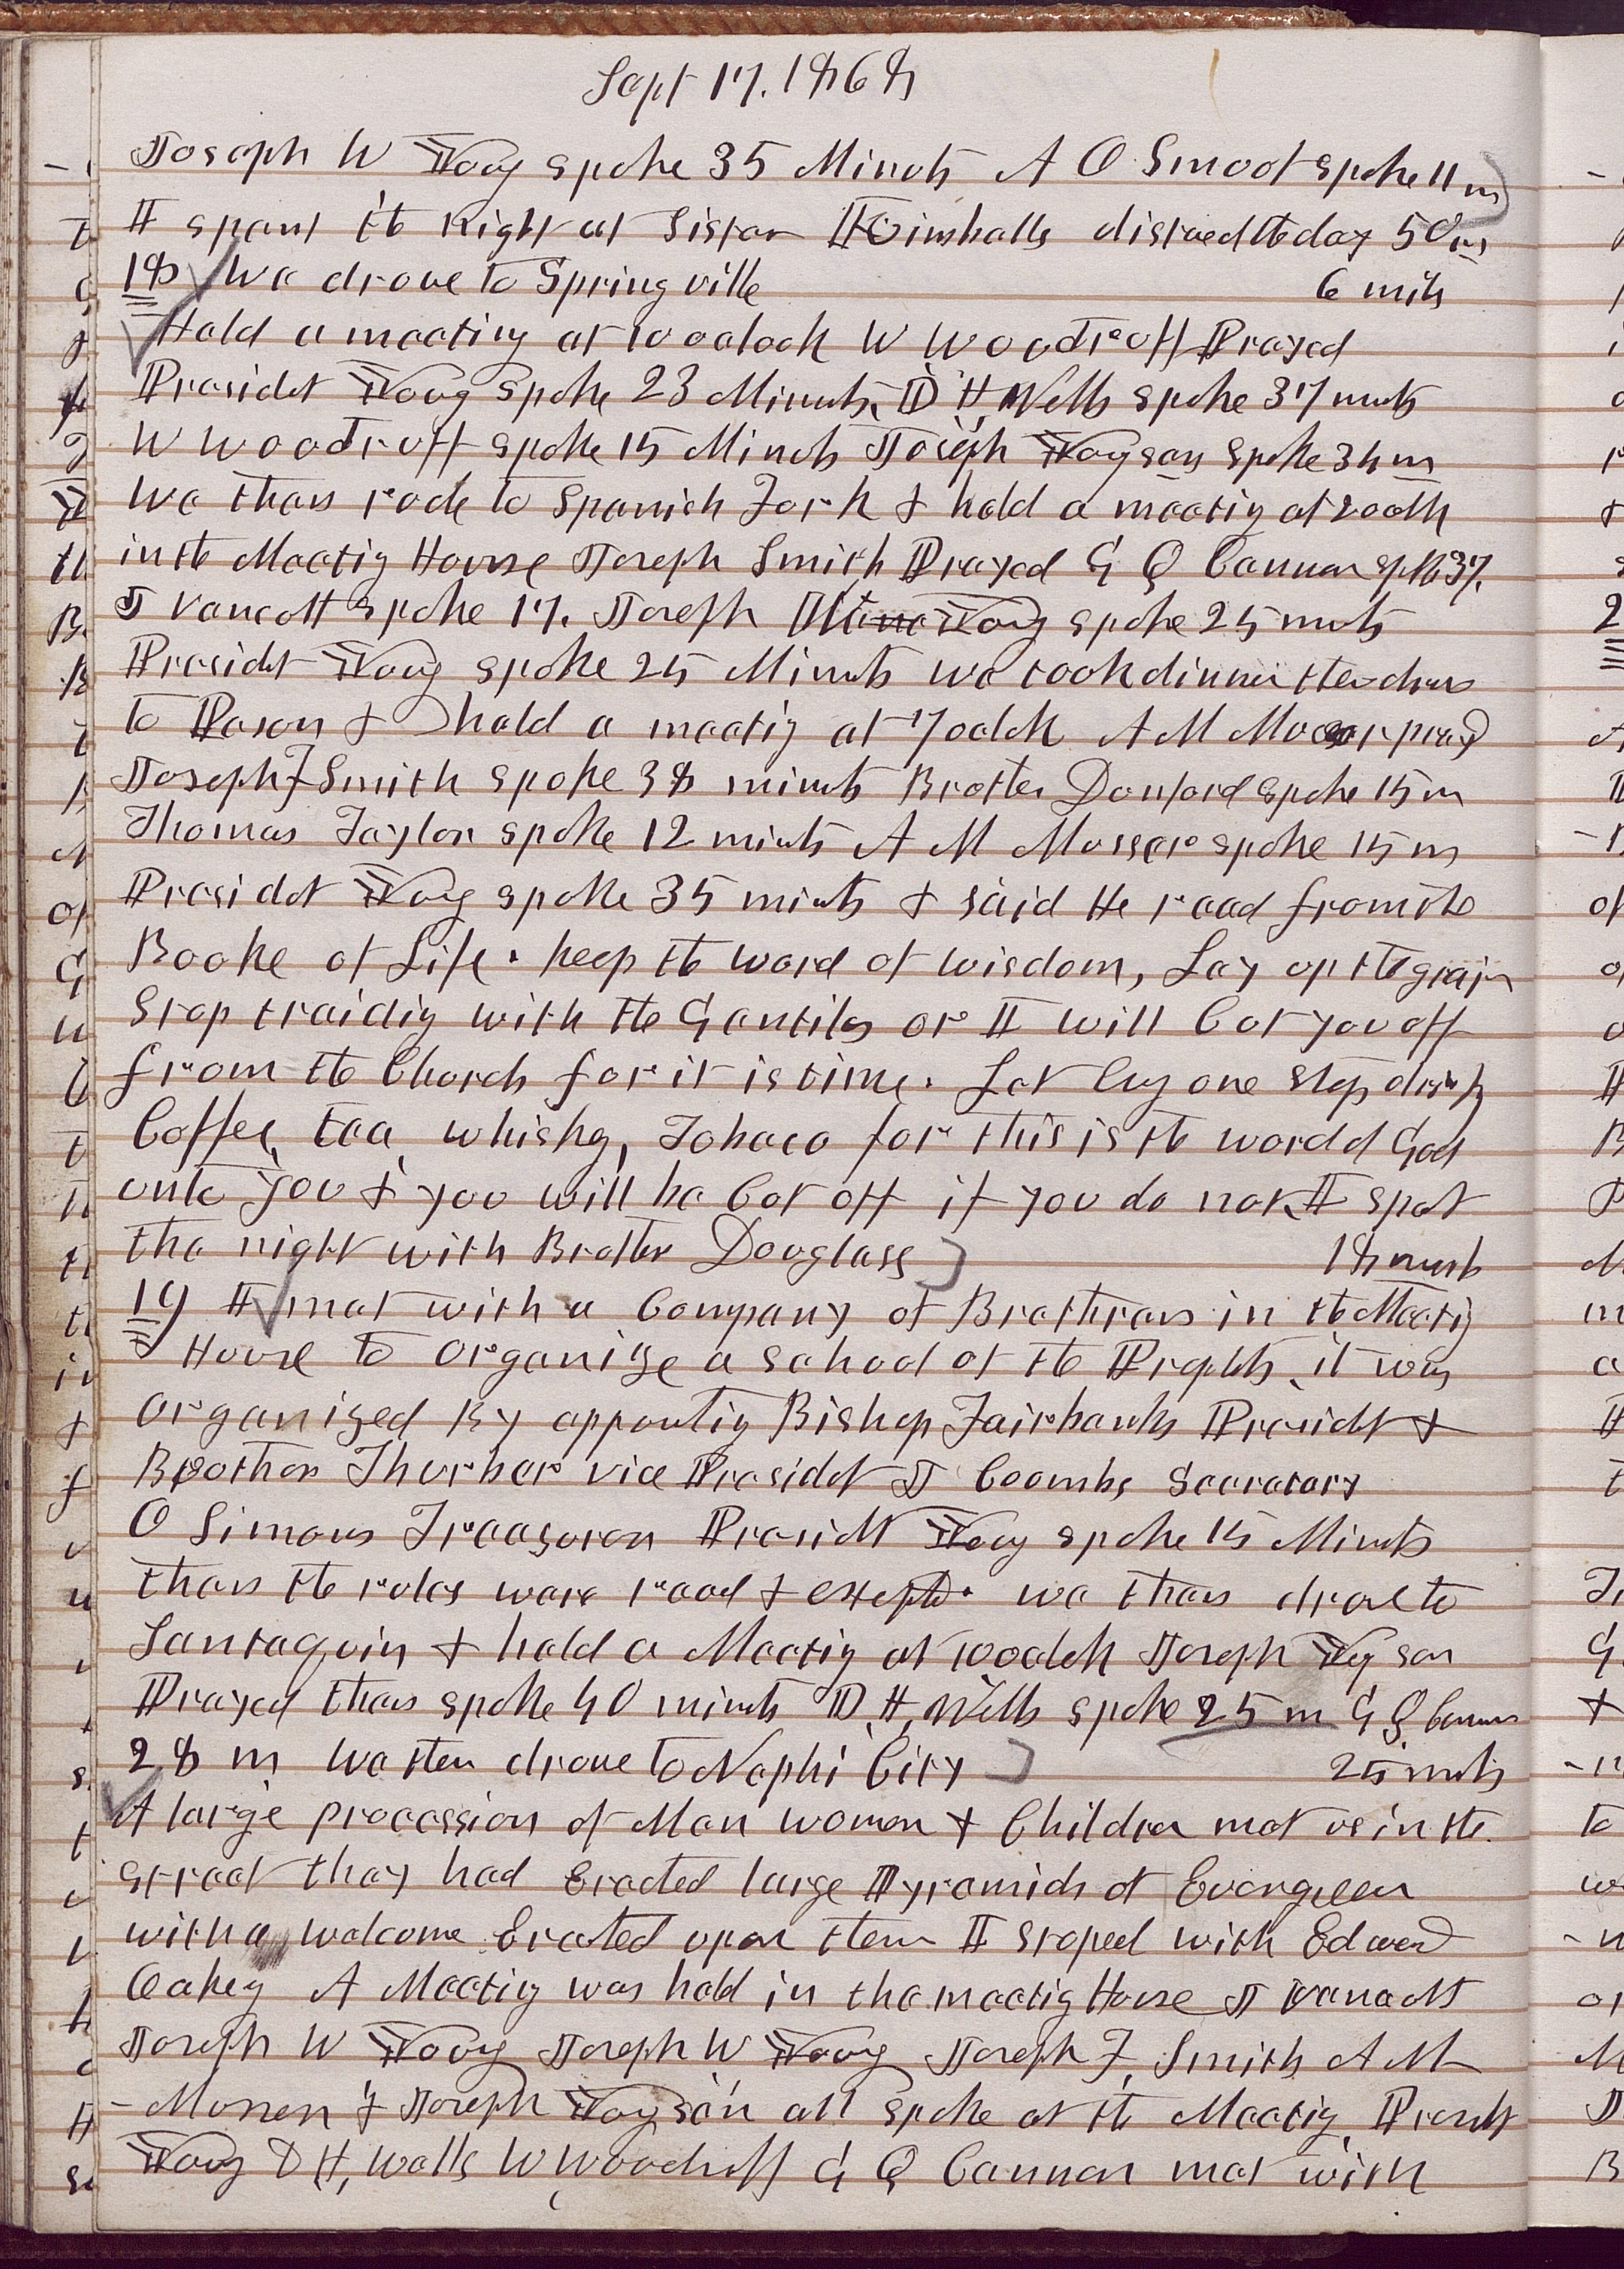 Sept 17. 1868
Joseph W Young spoke 35 Minuts A O Smoot spoke 11 m
I spent the Night at Sister Kimballs distance of the day 50 m
18 We drove to Springville 6 mils
Held a meeting at 10 oclock W Woodruff Prayed
Presidet Young Spoke 23 Minuts, D. H. Wells spoke 37 muts
W Woodruff spoke 15 Minuts Joseph Young son Spoke 34 m
We then rode to Spanish Fork & held a meetig at 2 oclk
in the Meetig House Joseph Smith Prayed G Q Cannon spoke 37.
J Vancott spoke 17. Joseph Young spoke 25 muts
Presidet Young spoke 25 Minuts we took dinner then drove
to Pason & held a meetig at 7 oclok A M Musser prayd
Joseph F Smith spoke 38 minuts Brother Danford spoke 15 m
Thomas Taylor spoke 12 minuts A M Musser spoke 15 m
Presidet Young spoke 35 minuts & said He read from the
Booke of Life. keep the word of wisdom, Lay up the grain
Stop traidig with the Gentiles or I will Cut you off
from the Church for it is time. Let Evry one stop drinkg
Coffee, tea, whisky, Tobaco for this is the word of God
unto you & you will be Cut off if you do not. I spet
the night with Brother Douglass 18 m
19 I met with a Company of Brethren in the Meetig
House to organize a school of the Prophets, it was
organized By appointig Bishop Fairbanks Presidet &
Brother Thurber vice Presidet J Coombs Secretary
O Simons Treasurer Presidt Young spoke 15 Minuts
then the rules ware read & excepted. we then drove to
Santaquin & held a Meetig at 10 oclok Joseph Young son
Prayed then spoke 40 minuts D. H. Wells spoke 25 m G Q Cannon
28 m We then drove to Nephi City 25 mils
A large procession of Men women & Children met us in the
street they had Erected large Pyramids of Evergreen
with a welcome Erected upon them I stoped with Edward
Oakey A Meetig was held in the meetig House J Vancott
Joseph W Young Joseph W Young Joseph F. Smith A M
Musser & Joseph Young son all spoke at the Meetig, Presidt
Young D H, Wells W Woodruff G Q Cannon met with